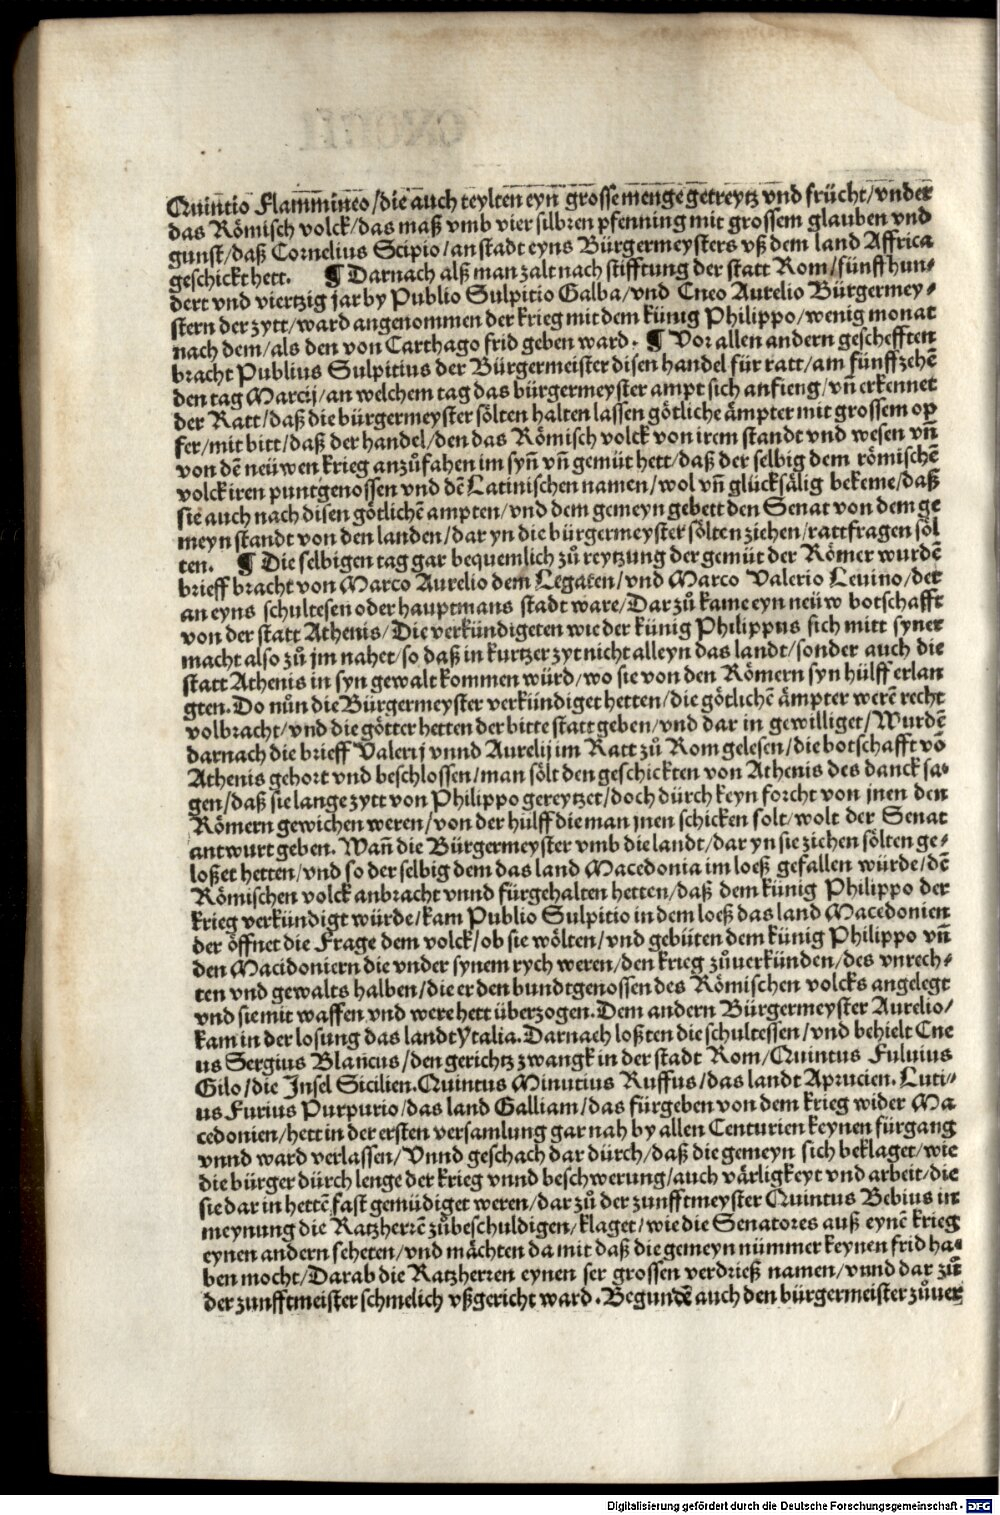 Quintio Flammineo/die auch teylten eyn grosse menge getreytz vnd frücht/vnder
das Römisch volck/das maß vmb vier silbren pfenning mit grossem glauben vnd
gunst/daß Cornelius Scipio/an stadt eyns Bürgermeysters vß dem land Affrica
geschickt hett. ¶ Darnach alß man zalt nach stifftung der statt Rom/fünffhun-
dert vnd viertzig jar by Publio Sulpitio Galba/vnd Cneo Aurelio Bürgermey-
stern der zytt/ward angenommen der krieg mit dem künig Philippo/wenig monat
nach dem/als den von Carthago frid geben ward. ¶ Vor allen andern geschefften
bracht Publius Sulpitius der Bürgermeister disen handel für ratt/am fünffzehē
den tag Marcij/an welchem tag das bürgermeyster ampt sich anfieng/vñ erkennet
der Ratt/daß die bürgermeyster sölten halten lassen götliche ämpter mit grossem op
fer/mit bitt/daß der handel/den das Römisch volck von irem standt vnd wesen vñ
von dē neüwen krieg anzůfahen im syñ vñ gemüt hett/daß der selbig dem römischē
volck iren puntgenossen vnd dē Latinischen namen/wol vñ glücksälig bekeme/daß
sie auch nach disen götlichē ampten/vnd dem gemeyn gebett den Senat von dem ge
meyn standt von den landen/dar yn die bürgermeyster sölten ziehen/rattfragen söl
ten. ¶ Die selbigen tag gar bequemlich zů reytzung der gemüt der Römer wurdē
brieff bracht von Marco Aurelio dem Legaten/vnd Marco Valerio Leuino/der
an eyns schultesen oder hauptmans stadt ware/Dar zů kame eyn neüw botschafft
von der statt Athenis/Die verkündigeten wie der künig Philippus sich mitt syner
macht also zů jm nahet/so daß in kurtzer zyt nicht alleyn das landt/sonder auch die
statt Athenis in syn gewalt kommen würd/wo sie von den Römern syn hülff erlan
gten. Do nůn die Bürgermeyster verkündiget hetten/die götlichē ämpter werē recht
volbracht/vnd die götter hetten der bitte statt geben/vnd dar in gewilliget/Wurdē
darnach die brieff Valerij vnnd Aurelij im Ratt zů Rom gelesen/die botschafft vō
Athenis gehort vnd beschlossen/man sölt den geschickten von Athenis des danck sa-
gen/daß sie lange zytt von Philippo gereytzet/doch dürch keyn forcht von jnen den
Römern gewichen weren/von der hülff die man jnen schicken solt/wolt der Senat
antwurt geben. Wañ die Bürgermeyster vmb die landt/dar yn sie ziehen sölten ge-
loßet hetten/vnd so der selbig dem das land Macedonia im loeß gefallen würde/dē
Römischen volck anbracht vnnd fürgehalten hetten/daß dem künig Philippo der
krieg verkündigt würde/kam Publio Sulpitio in dem loeß das land Macedonien
der öffnet die Frage dem volck/ob sie wölten/vnd gebüten dem künig Philippo vñ
den Macidoniern die vnder synem rych weren/den krieg zůuerkünden/des vnrech-
ten vnd gewalts halben/die er den bundtgenossen des Römischen volcks angelegt
vnd sie mit waffen vnd were hett überzogen. Dem andern Bürgermeyster Aurelio/
kam in der losung das landt ytalia. Darnach loßten die schultessen/vnd behielt Cne
us Sergius Blancus/den gerichtz zwangk in der stadt Rom/Quintus Fuluius
Gilo/die Insel Sicilien. Quintus Minutius Ruffus/das landt Aprucien. Luti-
us Furius Purpurio/das land Galliam/das fürgeben von dem krieg wider Ma
cedonien/hett in der ersten versamlung gar nah by allen Centurien keynen fürgang
vnnd ward verlassen/Vnnd geschach dar dürch/daß die gemeyn sich beklaget/wie
die bürger dürch lenge der krieg vnnd beschwerung/auch värligkeyt vnd arbeit/die
sie dar in hettē fast gemüdiget weren/dar zů der zunfftmeyster Quintus Bebius in
meynung die Ratzherrē zůbeschuldigen/klaget/wie die Senatores auß eynē krieg
eynen andern seheten/vnd mächten da mit daß die gemeyn nümmer keynen frid ha-
ben mocht/Darab die Ratzherren eynen ser grossen verdrieß namen/vnnd dar zů
der zunfftmeister schmelich vßgericht ward. Begundē auch den bürgermeister zůuer
Digitalisierung gefördert durch die Deutsche Forschungsgemeinschaft - DFG